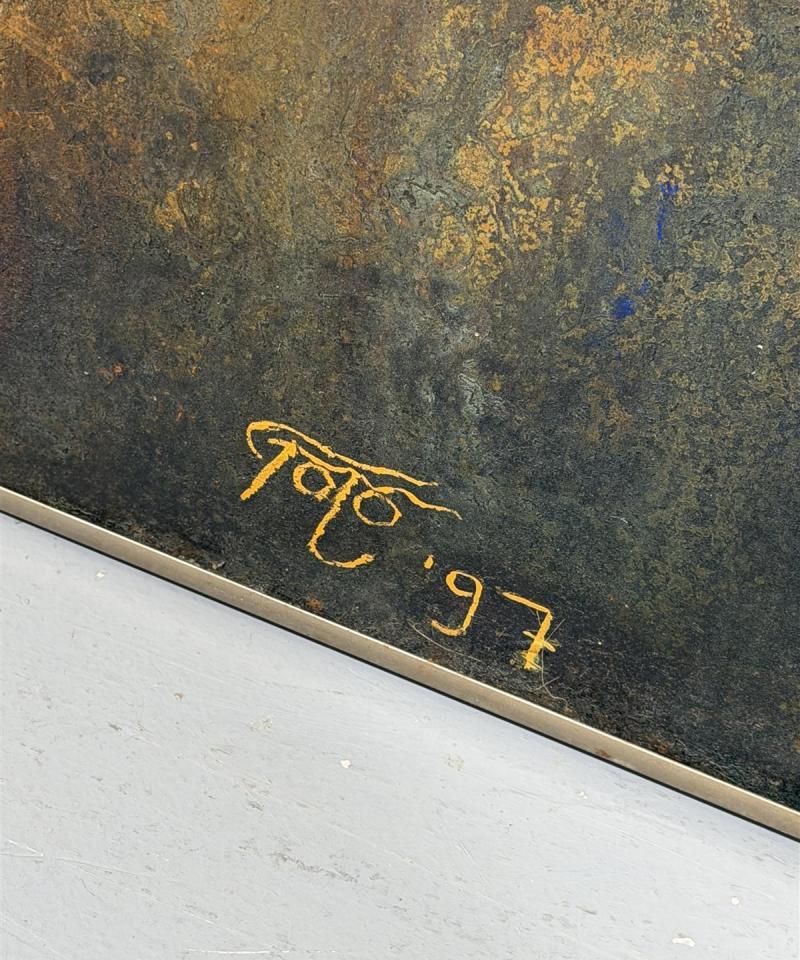 Toto '97